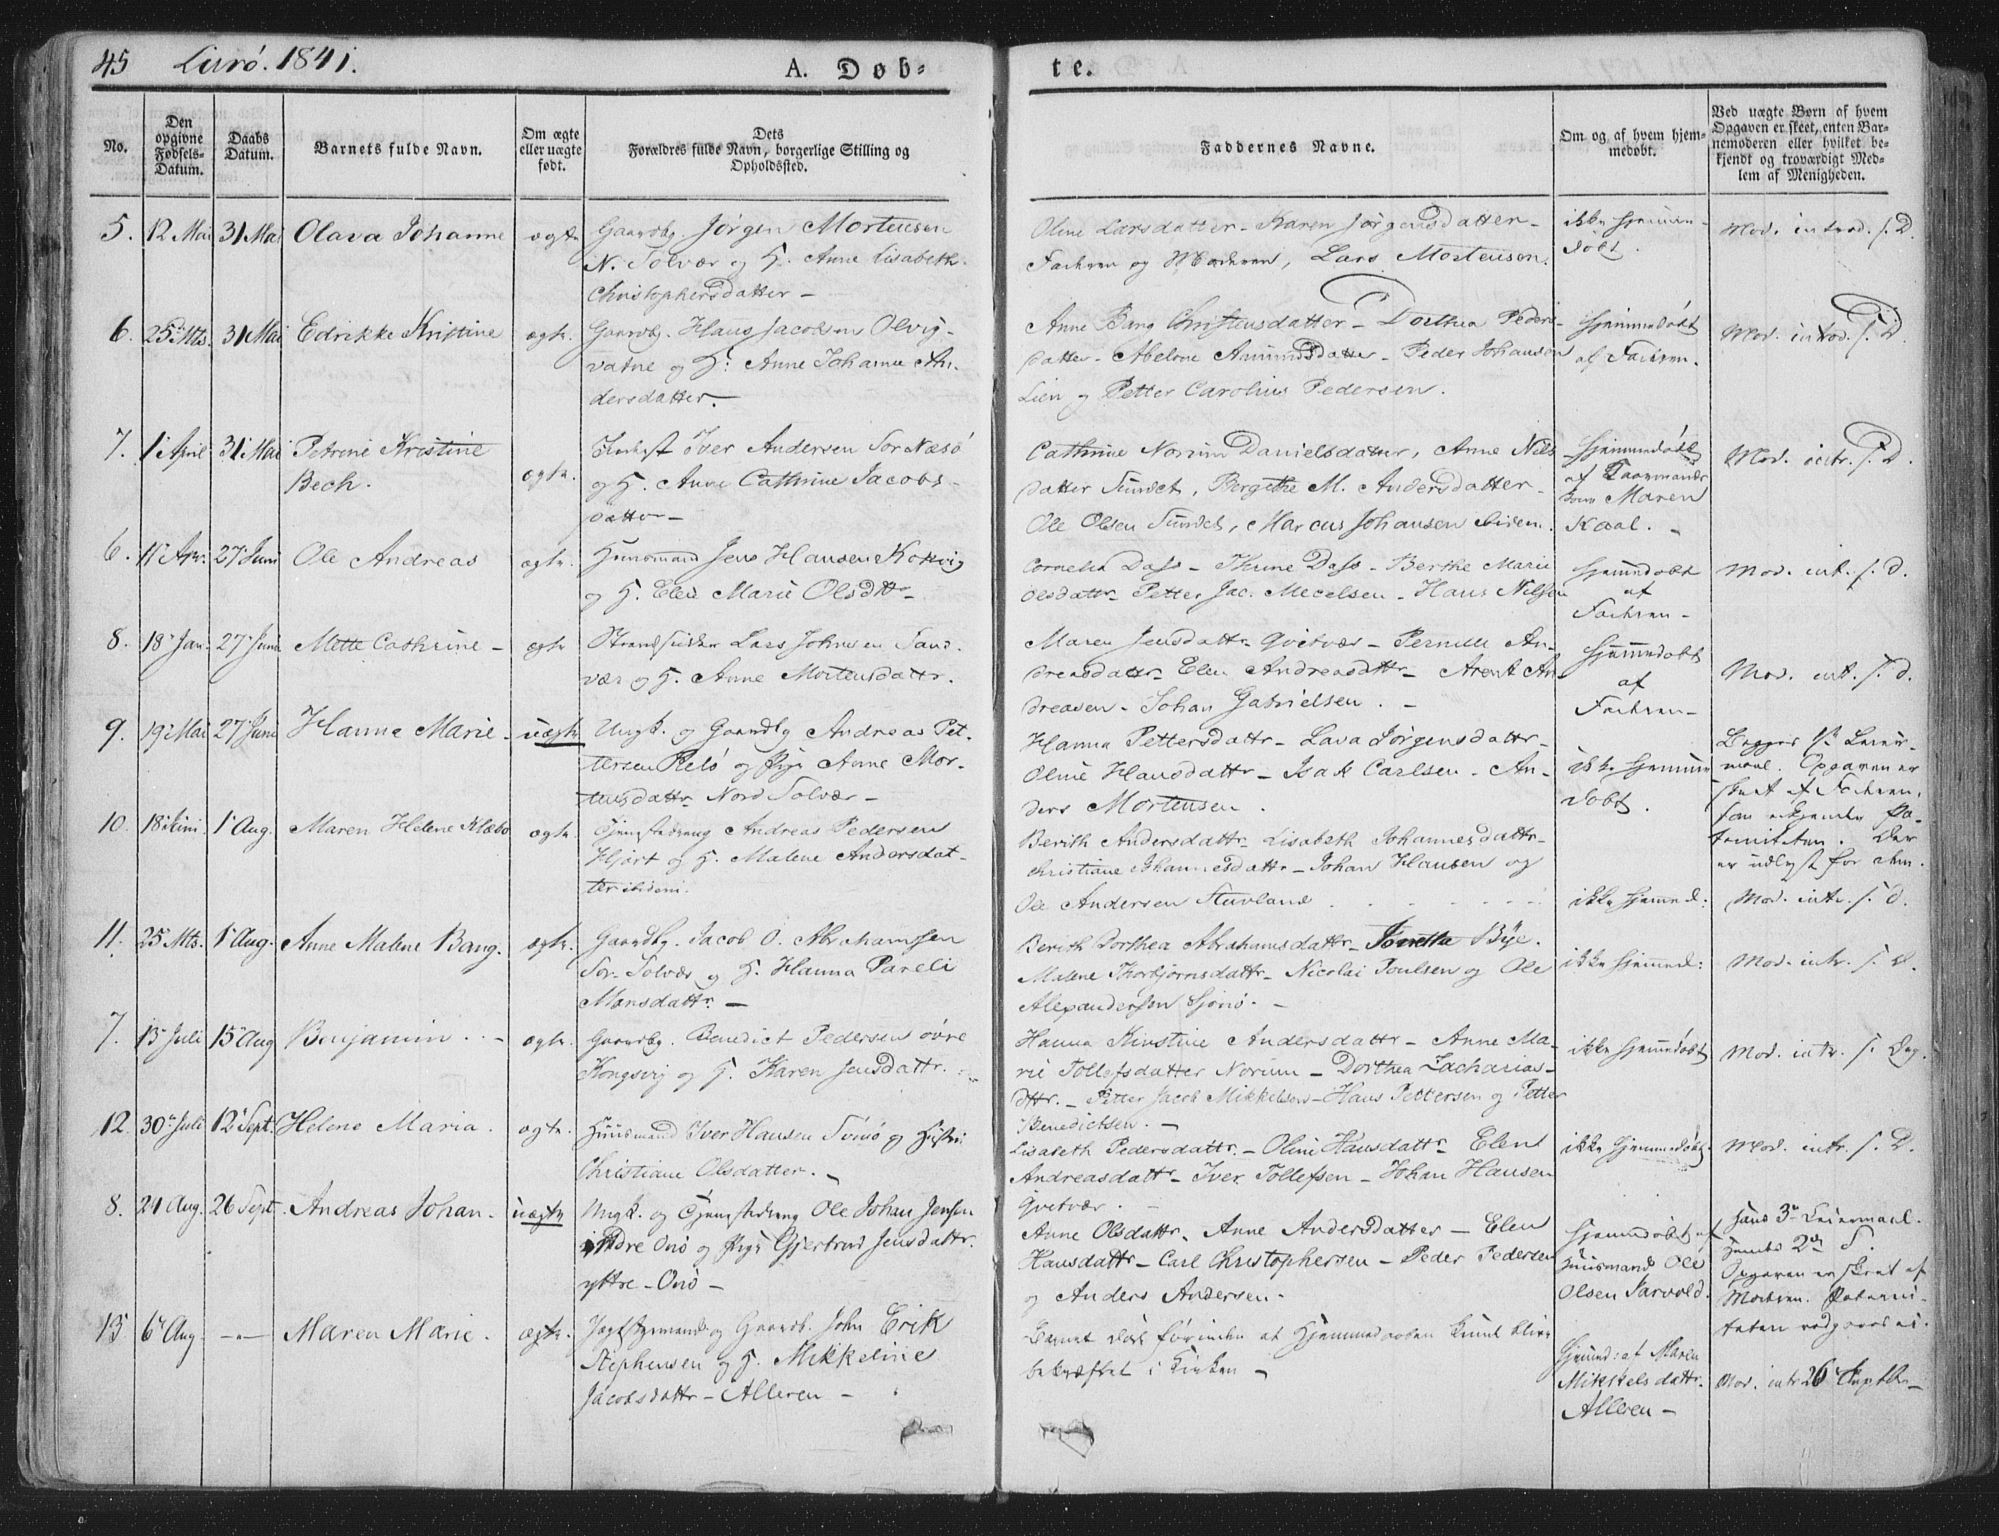 45 Lurö. 1841.
A. Døb-
te.
No.
Den opgivne Fødsels-Datum.
Daabs Datum.
Barnets fulde Navn.
Om ægte eller uægte født.
Dets Forældres fulde Navn, borgerlige Stilling og Opholdssted.
Faddernes Navne.
Om og af hvem hjemmedøbt.
Ved uægte Børn af hvem Opgaven er skeet, enten Barnemoderen eller hvilket bekjendt og troværdigt Medlem af Menigheden.
5. 12 Mai 31 Mai Olava Johanne ægte Gaardbg. Jørgen Mortensen
N. Solvær og H. Anne Lisabeth
Christophersdatter –
Oline Larsdatter – Karen Jørgensdatter –
Fadren og Modren, Lars Mortensen.
ikke hjemme-
døbt.
Mod. introd. s. D.
6. 25 Mts. 31 Mai Edrikke Kristine ægte Gaardbg. Hans Jacobsen Olvig-
vatne og H. Anne Johanne An-
dersdatter. –
Anne Bang Christensdatter – Dorthea Peders-
datter – Abelone Amundsdatter – Peder Johansen
Lien og Petter Carolius Pedersen.
Hjemmedøbt
af Fadren.
Mod. introd. s. D.
7. 1 April 31 Mai Petrine Kristine
Bech.
ægte. Inderst Iver Andersen Sor Næsö
og H. Anne Cathrine Jacobs-
datter –
Cathrine Norum Danielsdatter, Anne Nils
datter Sundet, Bergithe M. Andersdatter –
Ole Olsen Sundet, Marcus Johansen ibidem.
Hjemmedøbt
af
Maren
Kaal. –
Mod. intr. s. D.
6. 11 Apr. 27 Juni Ole Andreas ægte. Huusmand Jens Hansen Kokvig
og H. Elen Marie Olsdtr –
Cornelia Dass – Thrine Dass – Berthe Marie
Olsdattr – Petter Jac. Mecelsen – Hans Nilsen
Hjemmedøbt
af
Fadren –
Mod. int. s. d.
8. 18 Jan. 27 Juni Mette Cathrine – ægte Strandsidder Lars Johnsen Sand-
vær og H. Anne Mortensdattr.
Maren Jensdattr Qvitvær – Pernille An-
dreasdattr – Elen Andreasdattr – Arent An-
dreasen – Johan Gabrielsen. –
Hjemmedøbt
af
Fadren –
Mod. int. s. d.
9. 19 Mai 27 Juni Hanna Marie – uægte Ungk. og Gaardbg Andreas Pet-
tersen Selö og Pige Anne Mor-
tensdattr Nord Solvær –
Hanna Pettersdattr – Lava Jørgensdattr –
Oline Hansdattr – Isak Carlsen – An-
ders Mortensen.
ikke hjemme
døbt.
Begges 1ste Leier-
maal. Opgaven er
skeet af Fadren,
som erkjender Pa-
terniteten. Der
er udlyst for dem.
10. 18 Juni 1 Aug. Maren Helene Klæbo ægte. Tjenestedreng Andreas Pedersen
Hjort og H. Malene Andersdat-
ter ibidem.
Berith Andersdattr – Lisabeth Johannesdattr –
Christiane Johannesdattr – Johan Hansen og
Ole Andersen Stuvland.
ikke hjemmed.
Mod. intr. s. d.
11. 25 Mts. 1 Aug. Anne Malene Bang. ægte. Gaardbg. Jacob O. Abrahamsen
Sor-Solvær og H. Hanna Pareli
Monsdattr –
Berith Dorthea Abrahamsdattr – Jonetta Bye.
Malene Thorbjørnsdattr – Nicolai Poulsen og Ole
Alexandersen Sjonö. –
ikke hjemmed:
Mod. intr. s. D.
7. 13 Juli 15 Aug Benjamin. – ægte. Gaardbg. Benedict Pedersen övre
Kongsvig og H. Karen Jensdattr.
Hanna Kirstine Andersdattr – Anne Ma-
rie Tollefsdatter Norum – Dorthea Zacharias-
dttr. – Petter Jacob Mikkelsen – Hans Pettersen og Petter
Benedictsen. –
ikke hjemmedøbt
Mod. intr. s. Dag.
12. 30 Juli 12 Sept. Helene Maria. ægte. Huusmand Iver Hansen Sönsö og Hustru
Christiane Olsdatter. –
Lisabeth Pedersdattr. – Oline Hansdattr – Elen
Andreasdattr – Iver Tollefsen – Johan Hansen
Qvitvær. –
ikke hjemmedøbt.
Mod. intr. s. D.
8. 21 Aug. 26 Sept. Andreas Johan – uægte Ungk. og Tjenestedreng Ole Johan Jensen
indre Onö og Pige Gjertrud Jensdattr.
yttre – Onö –
Anne Olsdattr. Anne Andersdatter – Elen
Hansdattr – Carl Christophersen – Peder Pedersen
og Anders Andersen –
Hjemmedøbt af
Huusmand Ole
Olsen Sarvold.
Hans 3die Leiermaal.
Hendes 2det D.
Opgaven er skeet af
Modren. Paterni-
teten vedgaaes ei.
13 6 Aug. –〃– Maren Marie. ægte. og Gaardb. John Erik
Stephensen og H. Mikkeline
Jacobsdattr – Alleren –
Barnet døde førinden at Hjemmedaaben kunde blive
bekræftet i Kirken –
Hjemd: af Maren
Mikkelsdattr.
Alleren –
Mod. intr 26 Septbr –